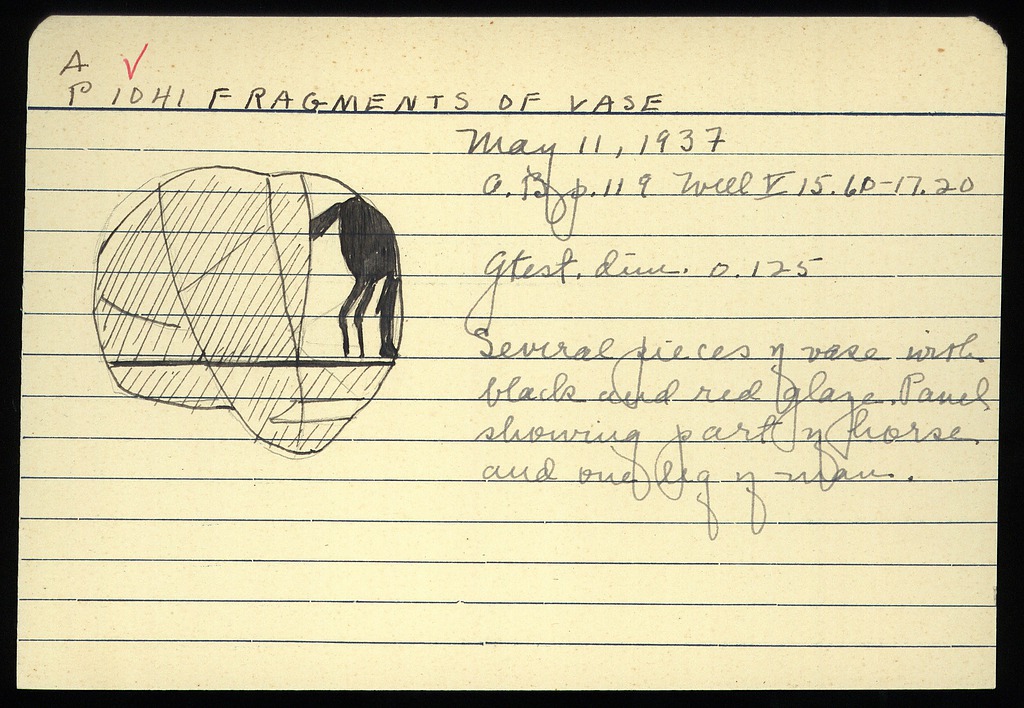 A ✓
P 1041 FRAGMENTS OF VASE
May 11, 1937
O.B p.119 Well V 15.60-17.20
Gtest. dim. 0.125
Several pieces of vase with
black and red glaze. Panel
showing part of horse
and one leg of man.